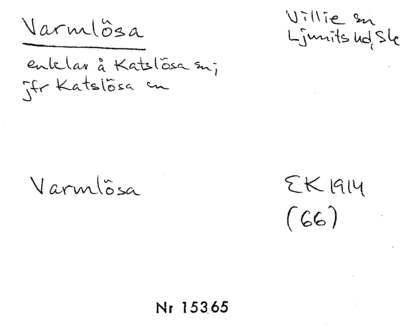 Varmlösa
Villie sn
Ljunits hd, Sk
enklav å Katslösa sn;
jfr Katslösa sn
Varmlösa
EK 1914
(66)
Nr 15365